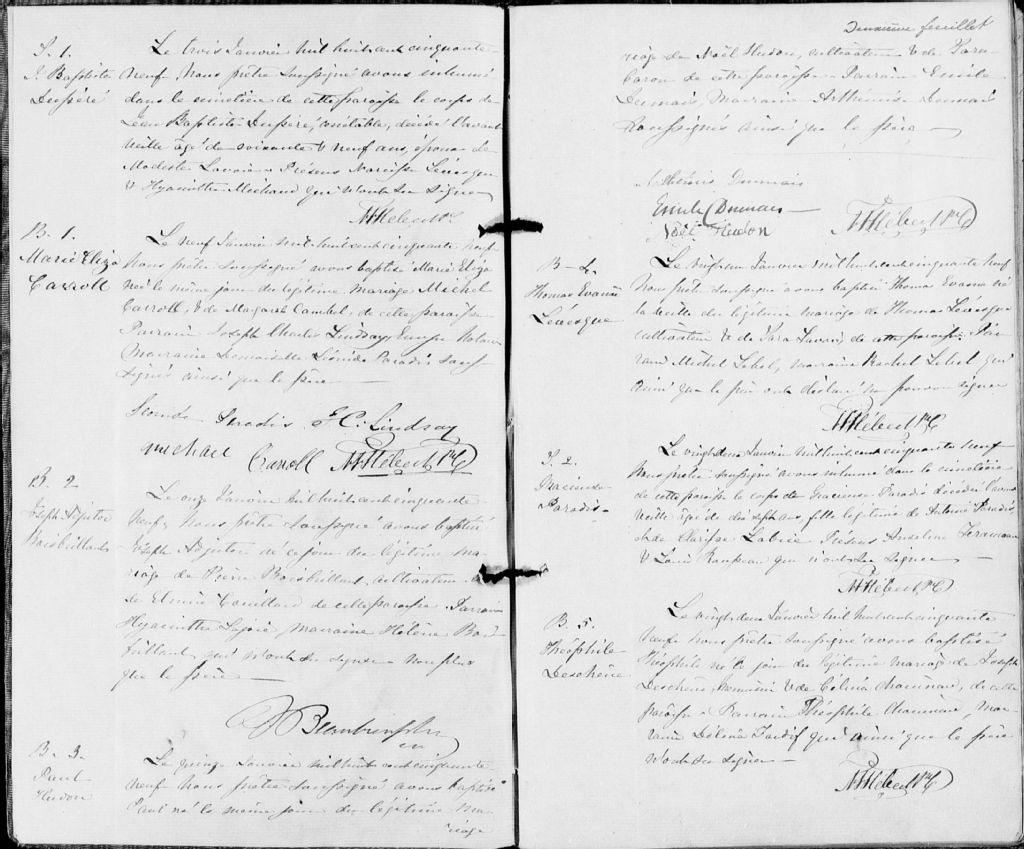 S. 1.
J. Baptiste
Dupéré
Le trois Janvier mil huit cent cinquante
neuf Nous prêtre Soussigné avons inhumé
dans le cimetière de cette paroisse le corps de
Jean Baptiste Dupéré, connétable, décédé l'avant
veille âgé de soixante & neuf ans, époux de
Modeste Lavoie - Présens Narcisse Lévesque
& Hyacinthe Michaud qui n'ont su signer
NHébert Ptre
B. 1.
Marie Eliza
Carroll
Le neuf Janvier mil huit cent cinquante neuf
Nous prêtre Soussigné avons baptisé Marie Eliza
née le même jour du légitime mariage Michel
Carroll, & de Margaret Cambel, de cette paroisse
Parrain Joseph Charles Lindsay, Notaire
Marraine Demoiselle Léonide Paradis sous
signés ainsi que le père
Paradis F. C. Lindsay
michael Carroll NHébert Ptre
B. 2
Joseph Adjutor
Boisbrillant
Le onze Janvier mil huit cent cinquante
neuf, Nous prêtre Soussigné avons baptisé
Joseph Adjutor né ce jour du légitime ma-
riage de Pierre Boisbrillant, cultivateur &
de Elmire Couillard de cette paroisse Parrain
Hyacinthe Lajoie marraine Hélène Bois-
brillant, qui n'ont su signer non plus
que le père
B. 3.
Paul
Hudon
Le quinze Janvier mil huit cent cinquante
neuf Nous prêtre Soussigné avons baptisé
Paul né le même jour du légitime ma-
riage
Deuxième feuillet
riage de Noël Hudon, cultivateur & de
de cette paroisse Parrain Emile
Dumais, Marraine Arthémise Dumais
Soussignés ainsi que le père
Dumais
Emile Dumais
Noël Hudon NHébert Ptre
B. 4.
Thomas Evariste
Lévesque
Le Janvier mil huit cent cinquante neuf
Nous prêtre Soussigné avons baptisé Thomas Evariste né
la veille du légitime mariage de Thomas Lévesque
cultivateur & de Sara Lavoie de cette paroisse. Par-
rain Michel Lebel, marraine Rachel Lebel qui
ainsi que le père ont déclaré ne pouvoir signer
NHébert Ptre
S. 2.
Paradis
Le vingt deux Janvier mil huit cent cinquante neuf
Nous prêtre Soussigné avons inhumé dans le cimetière
de cette paroisse le corps de Gracieuse Paradis décédée l'avant
veille âgée de dix sept ans fille légitime de Antoine Paradis,
& de Clarisse Labrie Présens Anselme
& Louis qui n'ont su signer
NHébert Ptre
B. 5.
Théophile
Deschêne
Le vingt deux Janvier mil huit cent cinquante
neuf Nous prêtre Soussigné avons baptisé
Théophile né le jour du légitime mariage de Joseph
Deschêne, Menuisier & de Célina Chouinard, de cette
paroisse Parrain Théophile Chouinard, Mar-
raine Tardif qui ainsi que le père
n'ont su signer
NHébert Ptre